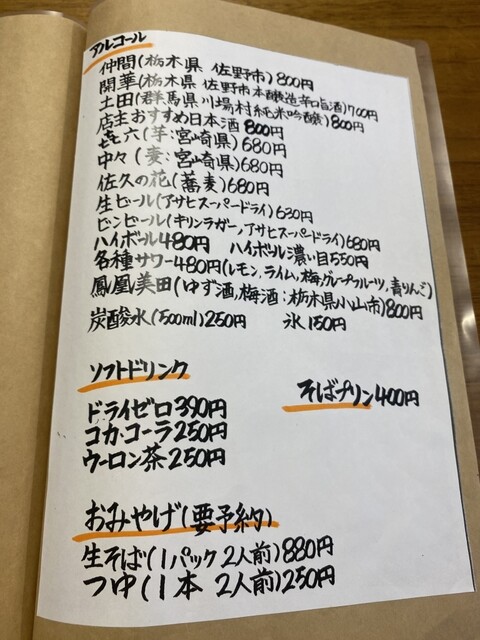 アルコール
仲間(栃木県 佐野市)800円
開華(栃木県 佐野市本醸造辛口旨酒)700円
土田(群馬県川場村純米吟醸)800円
店主おすすめ日本酒 800円
㐂六(芋:宮崎県)680円
中々(麦:宮崎県)680円
佐久の花(蕎麦)680円
生ビール(アサヒスーパードライ)630円
ビンビール(キリンラガー,アサヒスーパードライ)680円
ハイボール480円 ハイボール濃い目550円
各種サワー480円(レモン,ライム,梅,グレープフルーツ,青りんご)
鳳凰美田(ゆず酒,梅酒:栃木県小山市)800円
炭酸水(500ml)250円 氷150円
ソフトドリンク
そばプリン400円
ドライゼロ390円
コカ・コーラ250円
ウーロン茶250円
おみやげ(要予約)
生そば(1パック 2人前)880円
つゆ(1本 2人前)250円